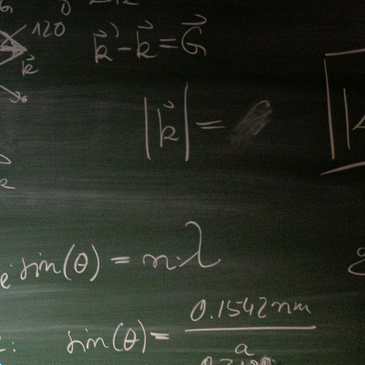 120
k⃗' - k⃗ = G⃗
k⃗
|k⃗| =
sin(θ) = n·λ
sin(θ) = 0.1542 nm
a